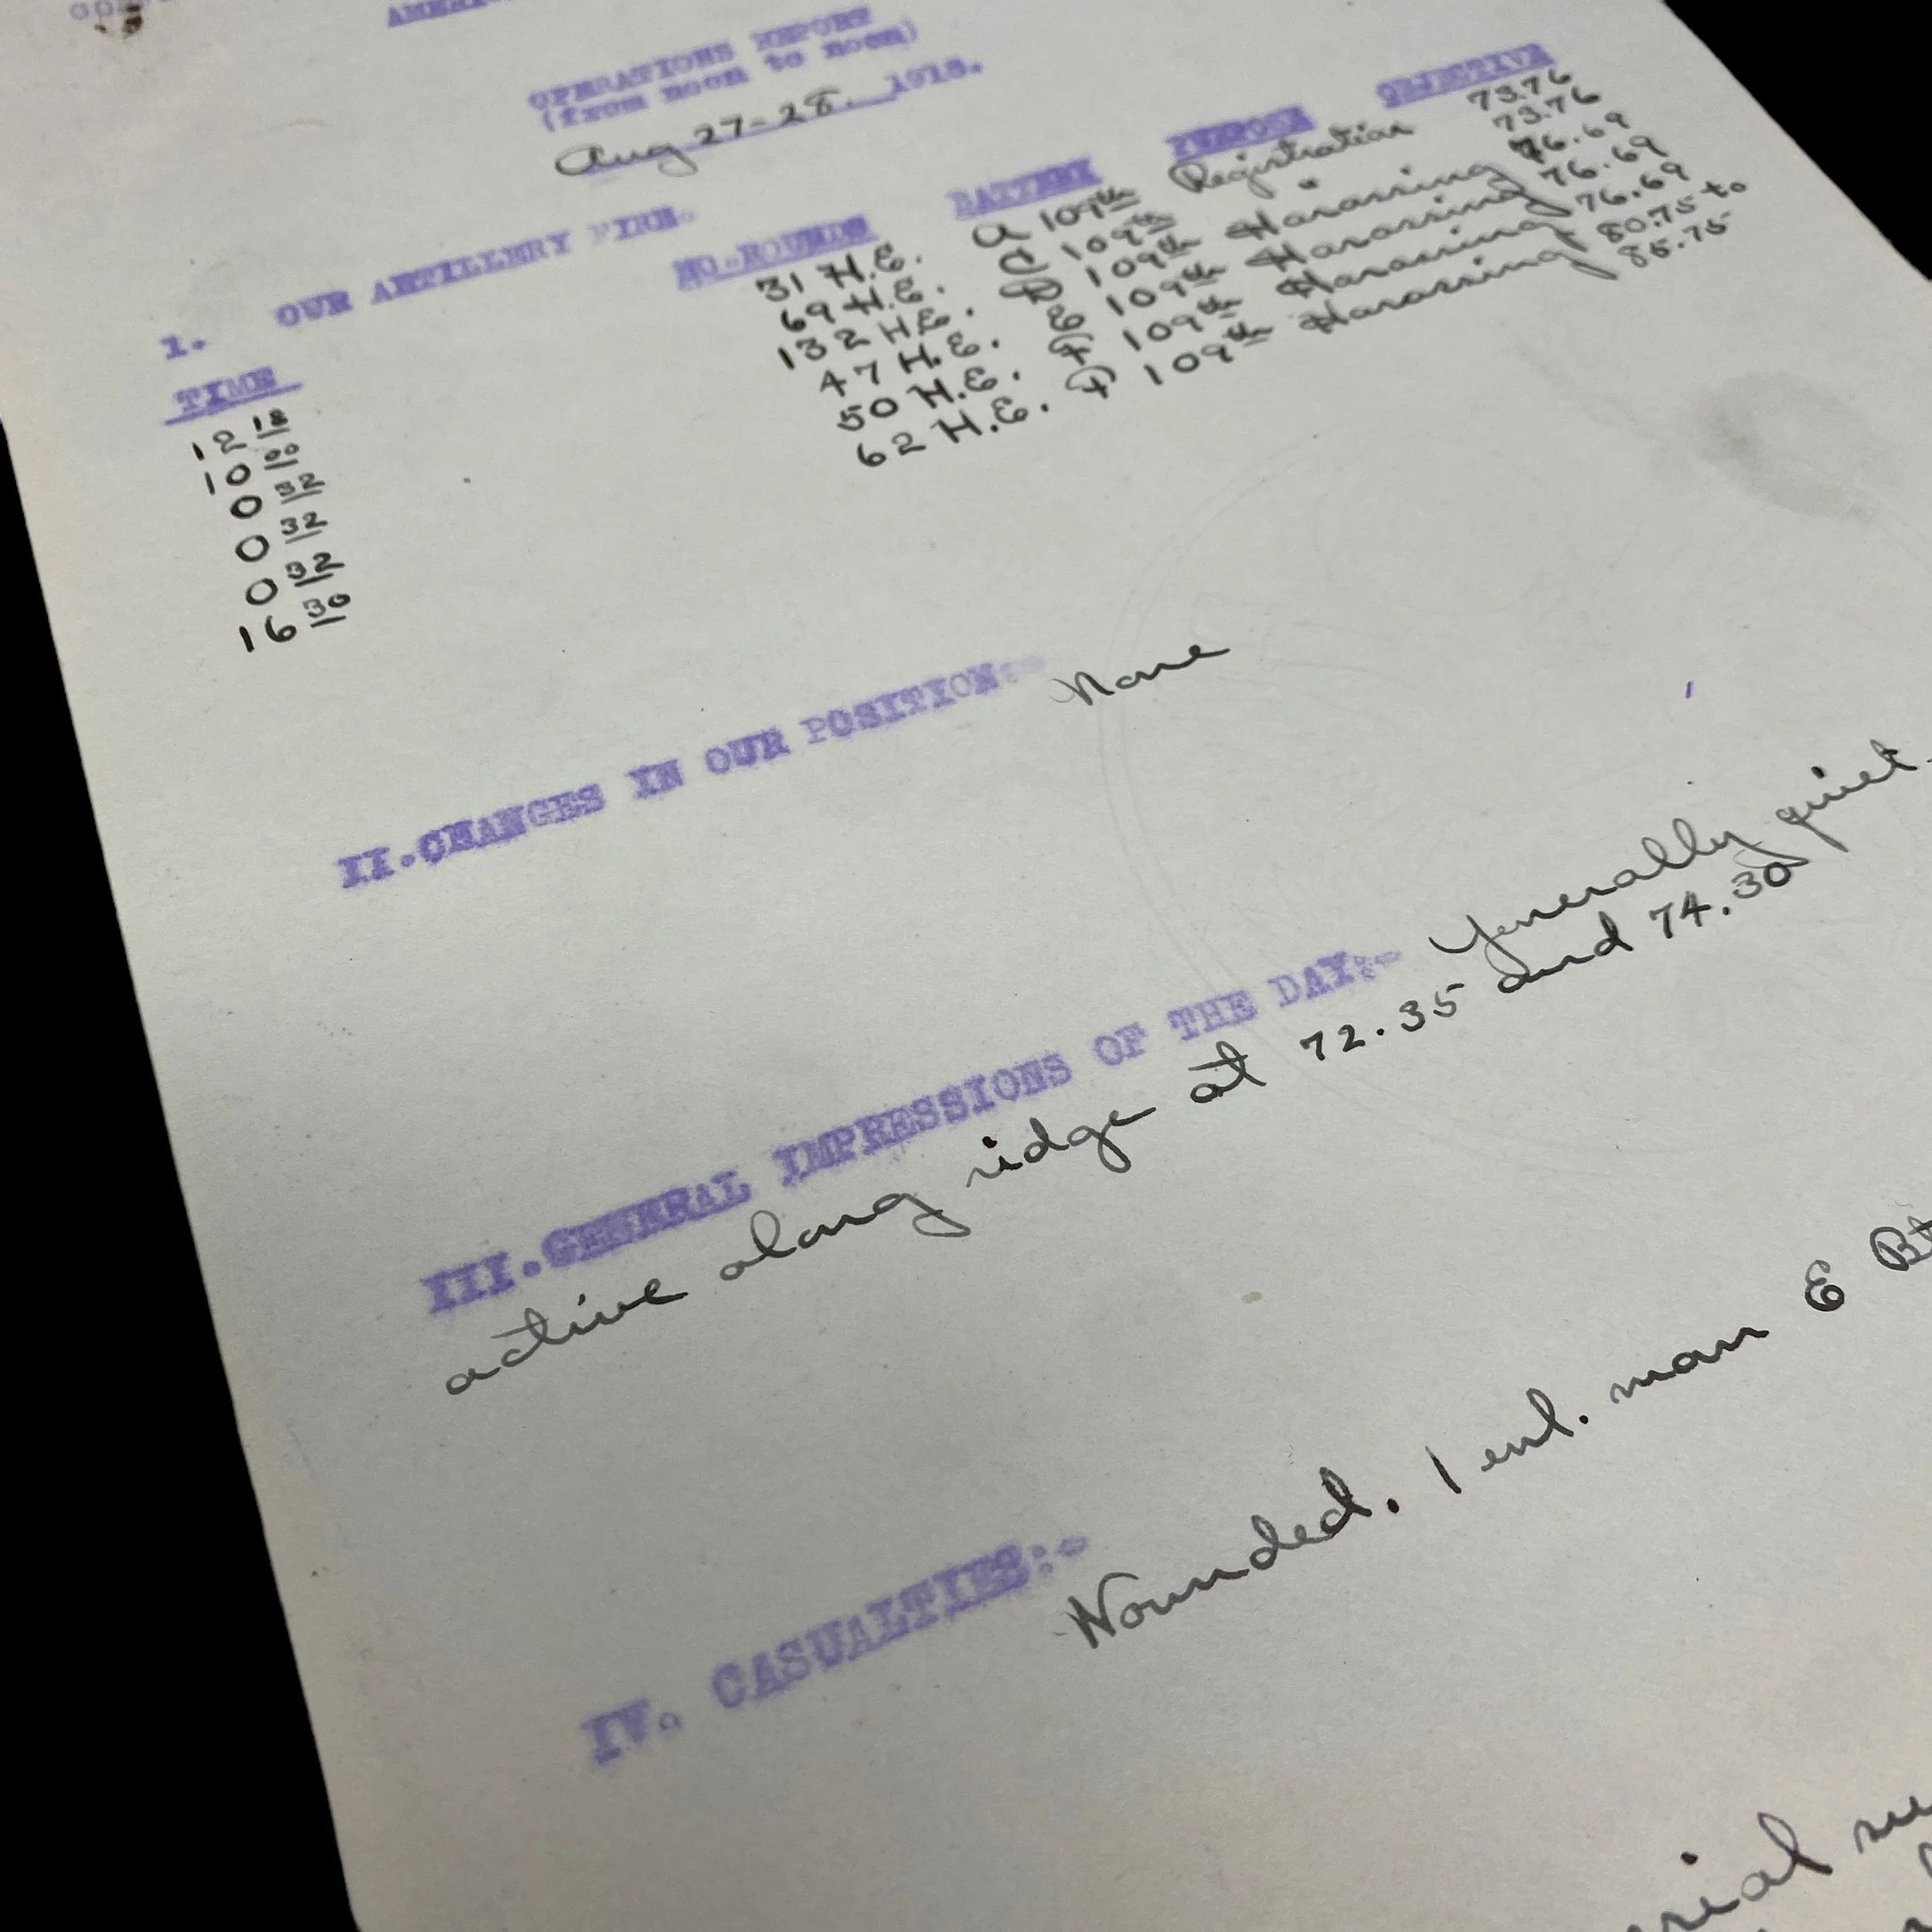 OPERATIONS REPORT
(from noon to noon)
Aug 27-28. 1918.
1. OUR ARTILLERY FIRE.
TIME NO.ROUNDS BATTERY PURPOSE OBJECTIVE
12 18 31 H.E. A 109th Registration 73.76
10 00 69 H.E. C 109th " 73.76
0 32 132 H.E. D 109th Harassing 76.69
0 32 47 H.E. E 109th Harassing 76.69
0 32 50 H.E. F 109th Harassing 76.69
16 30 62 H.E. F 109th Harassing 80.75 to
85.75
II.CHANGES IN OUR POSITION:- None
III.GENERAL IMPRESSIONS OF THE DAY:- Generally quiet.
active along ridge at 72.35 and 74.30
IV. CASUALTIES:-
Wounded. 1 enl. man E